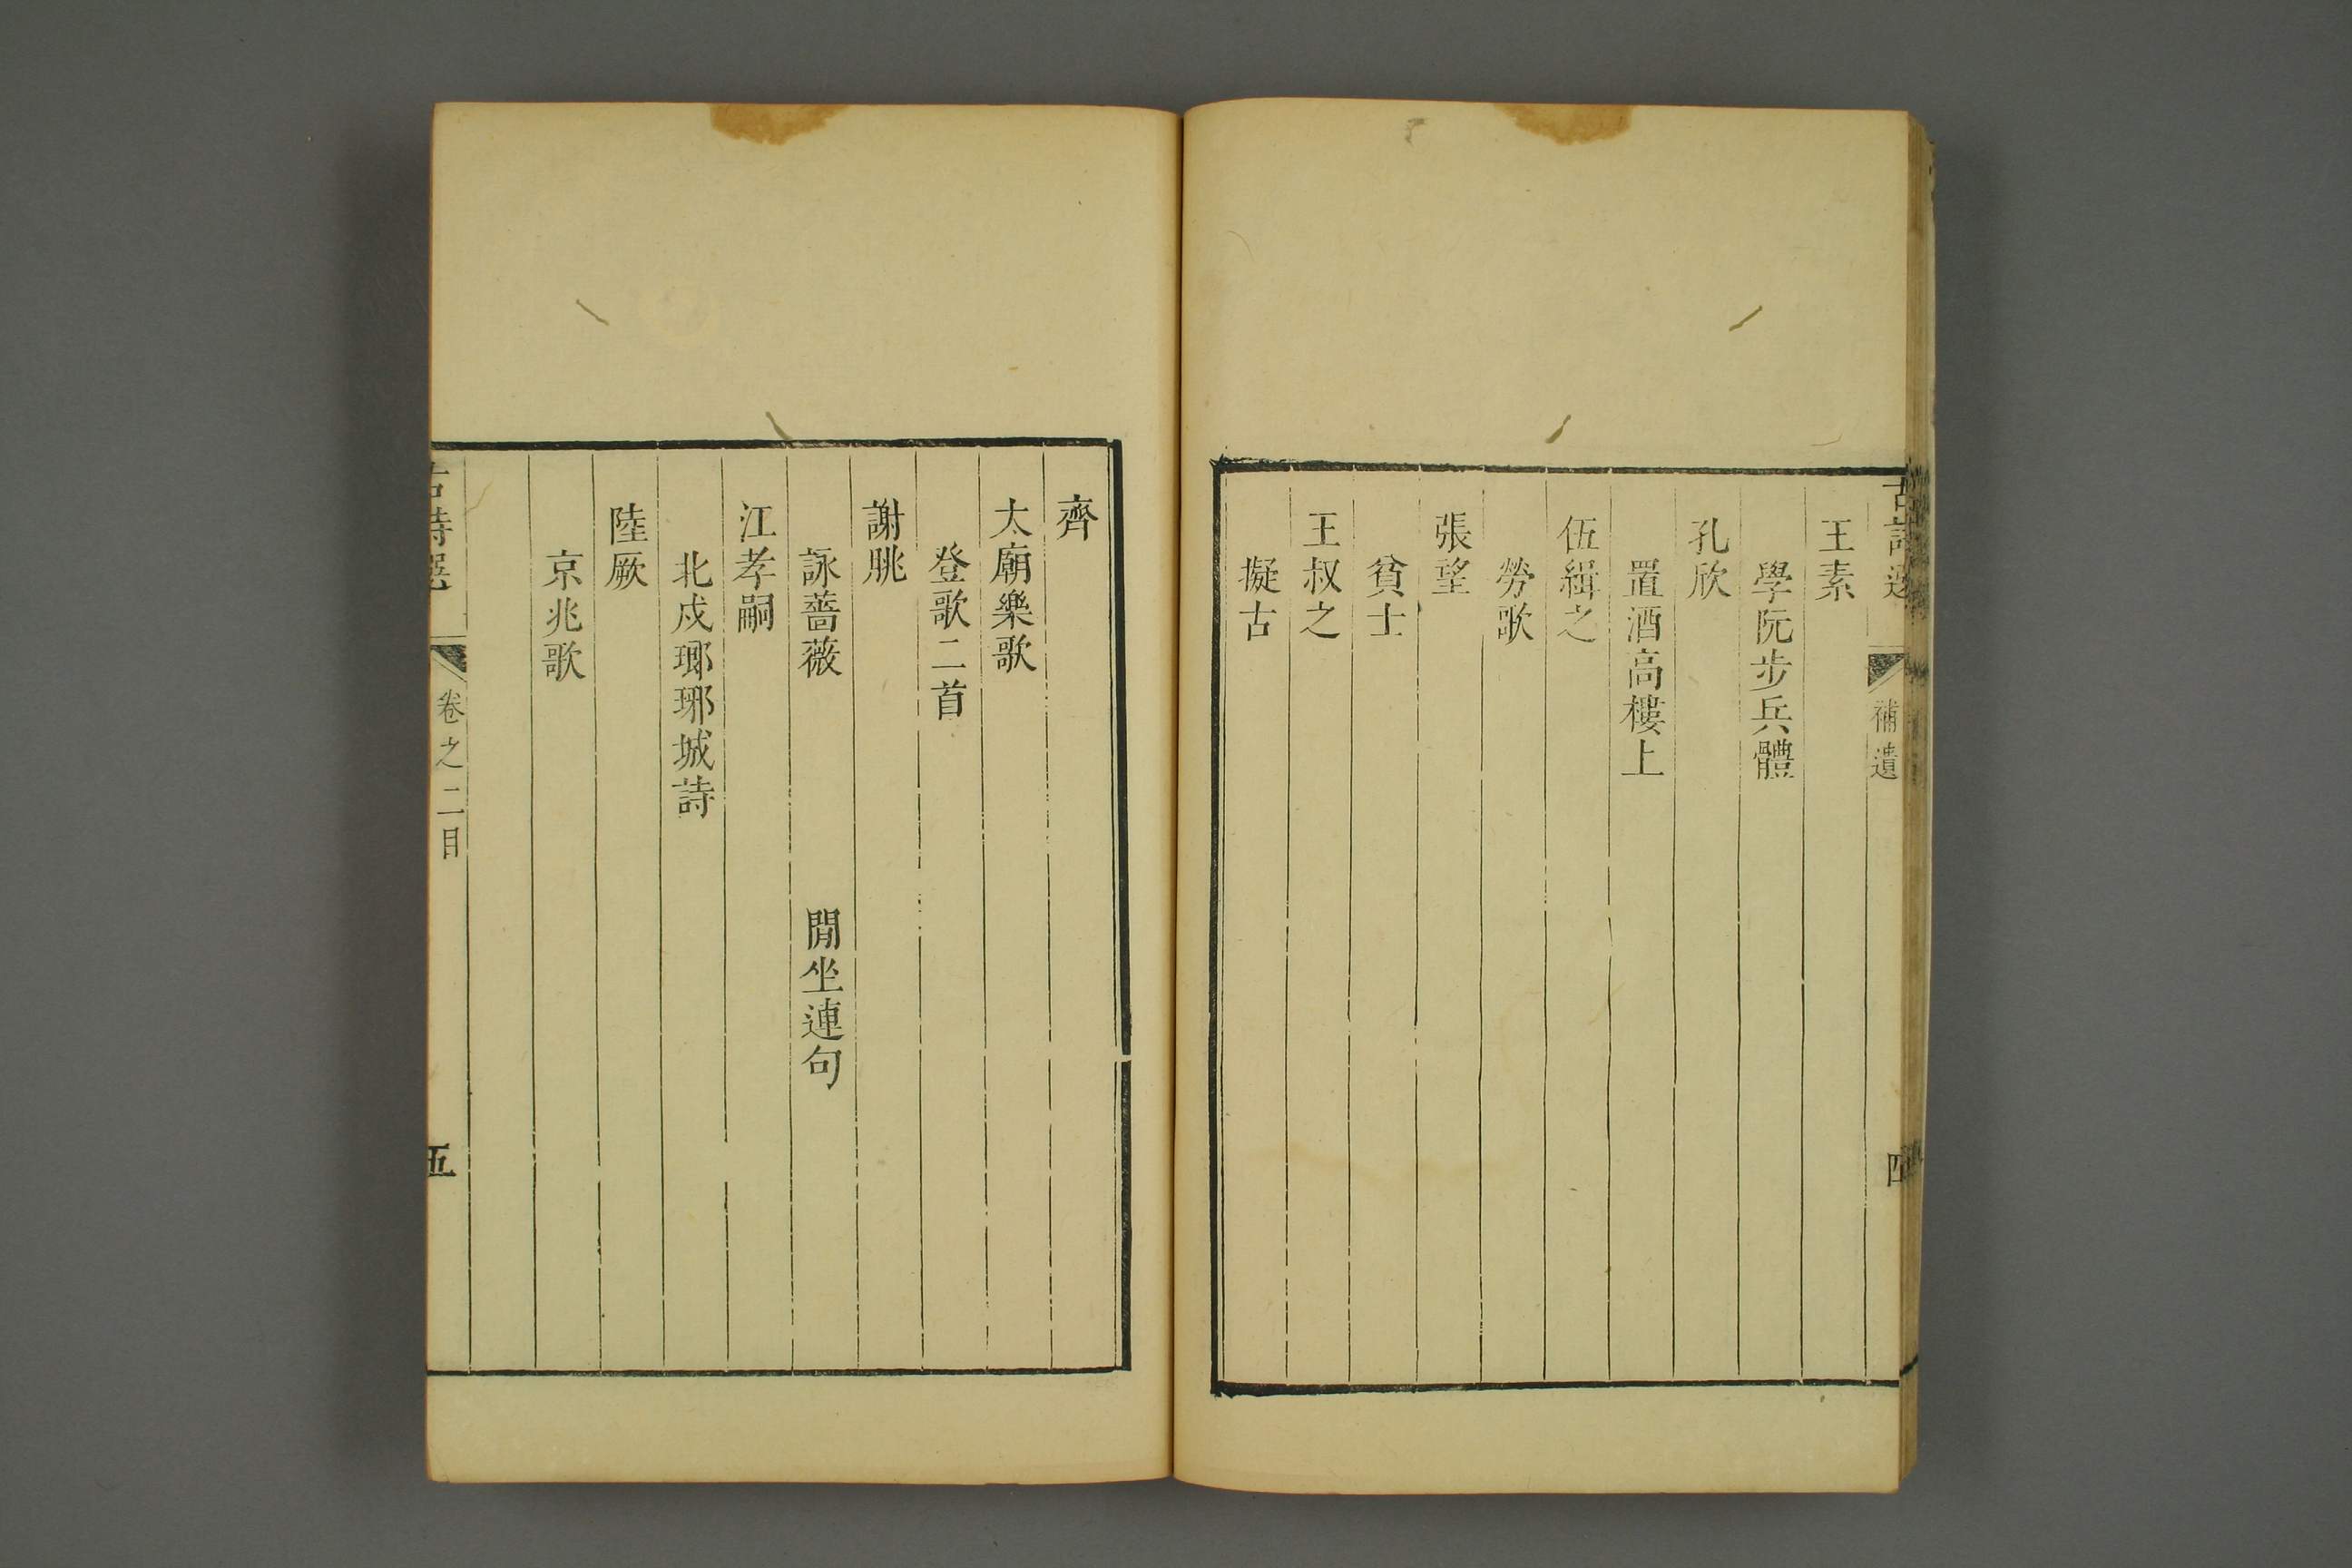 補遺
王素
學阮步兵體
孔欣
置酒高樓上
伍緝之
勞歌
張望
貧士
王叔之
擬古
齊
太廟樂歌
登歌二首
謝朓
詠薔薇 閒坐連句
江孝嗣
北戍瑯琊城詩
陸厥
京兆歌
古詩選 卷之二目 五